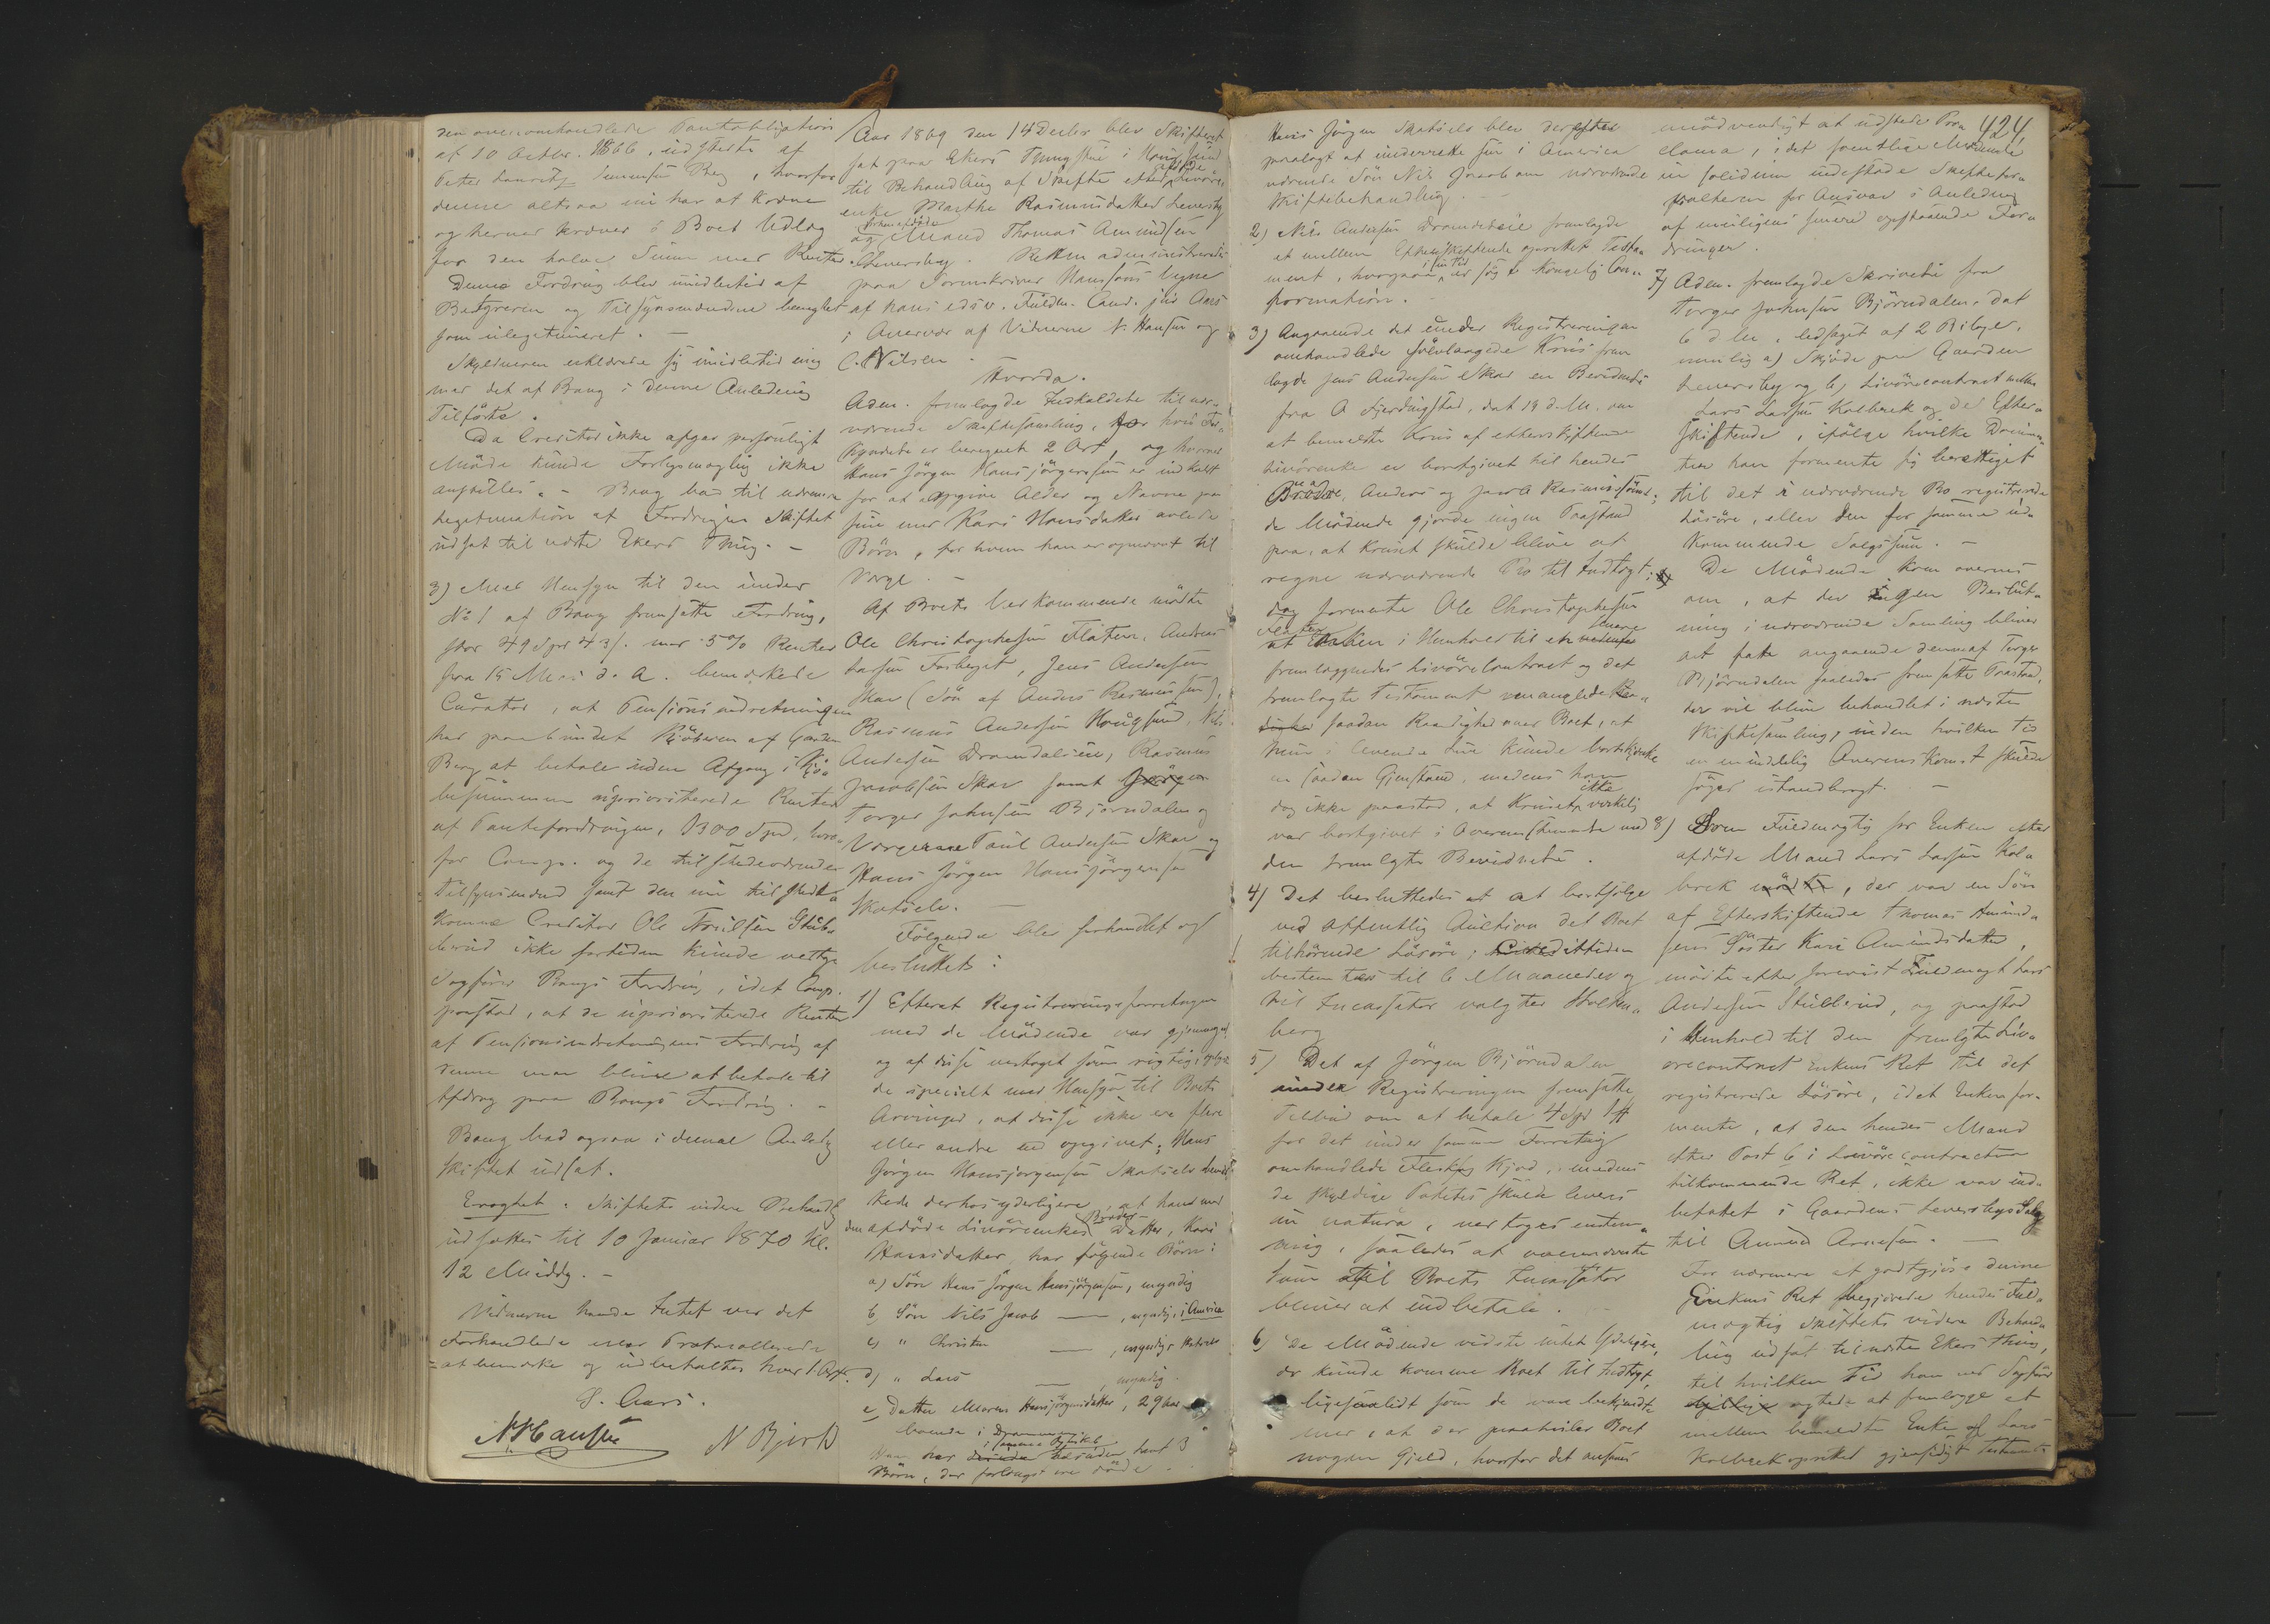 den ovenomhandlede Pantobligation
af 10 Octbr. 1866, udstedt af
Peter Lauritz Simensen Berg, hvorfor
denne altsaa nu har at kræve
og herved kræver i Boet Udlæg
for den halve Sum med Renter.
Denne Fordring blev imidlertid af
Bestyreren og Tilsynsmændene benegtet
som ulegitimeret. -
Skyldneren erklærede sig imidlertid enig
med det af Bang i denne Anledning
Tilførte.
Da Creditor ikke afgav personligt
Møde kunde Forligsmægling ikke
anstilles. - Bang bad til nærmere
Legitimation af Fordringen Skiftet
udsat til næste Ekers Thing. -
3) Med Hensyn til den under
No 1 af Bang fremsatte Fordring,
stor 49 Spd 43 s. med 5 % Renter
fra 15 Mai d. A. bemærkede
Curator, at Pensionsindretningen
har paabundet Kjøberen af Gaarden
Berg at betale uden Afgang i Kjø-
besummen uprioriterede Renter
af Pantefordringen, 1300 Spd, hvor-
for Comp. og de tilstedeværende
Tilsynsmænd samt den nu tilstede-
komne Creditor Ole
ikke fortiden kunde vedtage
Sagfører Bangs Fordring, idet Comp.
paastod, at de uprioriterede Renter
af Pensionsindretningens Fordring af
denne maa blive at betale til
Afdrag paa Bangs Fordring. -
Bang bad ogsaa i denne Anledg
Skiftet udsat.
Eragtet. Skiftets videre Behandlg
udsættes til 10 Januar 1870 Kl.
12 Middg. -
Vidnerne havde Intet ved det
Forhandlede eller Protocollerede
at bemærke og udbetaltes hver 1 Ort.
J. Aars.
N Hansen N Bjerk
Aar 1869 den 14 Decbr blev Skifteret
sat paa Ekers Thingstue i Hougsund
til Behandling af Skifte efter afdøde Livøre-
enke Marthe Rasmusdatter Leversby
og forhenafdøde Mand Thomas Amundsen
Leversby. Retten administreredes
paa Sorenskriver Hansons Vegne
af hans edsv. Fuldm. Cand. jur Aars
i Overvær af Vidnerne N. Hansen og
C. Nilsen.
Hvorda.
Adm. fremlagde Indkaldelse til nær-
værende Skiftesamling, for hvis For-
kyndelse er beregnet 2 Ort, og hvorved
Hans Jörgen Hansjörgensen er indkaldt
for at opgive Alder og Navne paa
sine med Kari Hansdatter avlede
Børn, for hvem han er opnævnt til
Værge. -
Af Boets Vedkommende mødte
Ole Christophersen Flaten, Andreas
Larsen Forberget, Jens Andersen
Skar (Søn af Anders Rasmussen),
Rasmus Andersen Hougsund, Nils
Andersen Dramdalseie, Rasmus
Jacobsen Skar samt Jørgen
Torger Johnsen Bjørndalen og
Værgerne Paul Andersen Skar og
Hans Jörgen Hansjörgensen
Skotselv. -
Følgende blev forhandlet og
besluttet:
1) Efterat Registreringsforretningen
med de Mødende var gjennemgaaet
og af disse vedtaget som rigtig, oplyste
de specielt med Hensyn til Boets
Arvinger, at disse ikke ere flere
eller andre end opgivet; Hans
Jörgen Hansjörgensen Skotselv bemær-
kede derhos yderligere, at han med
den afdøde Livøreenkes Broder Datter, Kari
Hansdatter, har følgende Børn:
a) Søn Hans Jörgen Hansjörgensen, myndig
b) Søn Nils Jacob —, myndig, i America
c) " Christen —, myndig, Skotselv
d) " Lars —, myndig.
e, Datter Maren Hansjörgensdatter, 29 Aar
boende i Drammen
Han har i samme Ægteskab desuden havt 3
Børn, der forlængst ere døde.
424
Hans Jörgen Skotselv blev derefter
paalagt at underrette sin i America
værende Søn Nils Jacob om nærværende
Skiftebehandling. -
2) Nils Andersen Dramdalseie fremlagde
et mellem Efterskiftende oprettet Testa-
ment, hvorpaa i sin Tid er søgt Kongelig Con-
firmation.
3) Angaaende det under Registreringen
omhandlede sølvlaagede Krus frem
lagde Jens Andersen Skar en Bevidnelse
fra A Fjerdingstad, dat 19 d. M. om
at bemeldte Krus af efterskiftende
Livøreenke er bortgivet til hendes
Brødre, Anders og Jacob Rasmussønner;
de Mødende gjorde ingen Paastand
paa, at Kruset skulde blive at
regne nærværende Bo til Indtægt;
dog formente Ole Christophersen
Flaten at Enken i Henhold til et senere
fremlæggendes Livørecontract og det
fremlagte Testament manglede
saadan Raadighed over Boet, at
hun i levende Live kunde bortskjænke
en saadan Gjenstand, medens han
dog ikke paastod, at Kruset ikke virkelig
var bortgivet i Overensstemmelse med
den fremlagte Bevidnelse.
4) Det besluttedes at at bortsælge
ved offentlig Auction det Boet
tilhørende Løsøre; Credittiden
bestemtes til 6 Maaneder og
til Incassator valgtes Holm-
berg
5) Det af Jörgen Bjørndalen
under Registreringen fremsatte
Tilbud om at betale 4 Spd 1 #
for det under samme Forretning
omhandlede Flesk og Kjød, medens
de skyldige Poteter skulde leveres
in natura, vedtoges enstem-
mig, saaledes at ovennævnte
Sum til Boets Incassator
bliver at indbetale. -
6) De Mødende vidste intet Yderligere,
der kunde komme Boet til Indtægt,
ligesaalidt som de vare bekjendte
med, at der paahviler Boet
nogen Gjeld, hvorfor det ansaaes
unødvendigt at udstede Pro-
clama, idet samtlige Mødende
in solidum indestode Skiftefor-
valteren for Ansvar i Anledning
af muligens senere opstaaende For-
dringer.
7) Adm. fremlagde Skrivelse fra
Torger Johnsen Bjørndalen, dat
6 d M., ledsaget af 2 Bilager,
nemlig a) Skjøde paa Gaarden
Leversby og b) Livørecontract mellem
Lars Larsen Kolbrek og de Efter-
skiftende, ifølge hvilke Documen-
ter han formente sig berettiget
til det i nærværende Bo registrerede
Løsøre, eller den for samme ud-
kommende Salgssum. -
De Mødende kom overens
om, at der ingen Beslut-
ning i nærværende Samling bliver
at fatte angaaende denne af Torger
Bjørndalen saaledes fremsatte Paastand,
der vil blive behandlet i næste
Skiftesamling, inden hvilken Tid
en mindelig Overenskomst skulde
søges istandbragt. -
8) Som Fuldmægtig for Enken efter
afdøde Mand Lars Larsen Kol-
brek mødte, der var en Søn
af Efterskiftende Thomas Amund-
sens Søster Kari Amundsdatter,
mødte efter forevist Fuldmagt Lars
Andersen Stubberud, og paastod
i Henhold til den fremlagte Liv-
ørecontract Enkens Ret til det
registrerede Løsøre, idet Enken for-
mente, at den hendes Mand
efter Post 6 i Livørecontracten
tilkommende Ret, ikke var ind-
befattet i Gaardens Leversbys Salg
til Amund Arnesen. -
For nærmere at godtgjøre denne
Enkens Ret begjærede hendes Fuld-
mægtig Skiftets videre Behand-
ling udsat til næste Ekers Thing,
til hvilken Tid han ved Sagfører
agtede at fremlægge et
mellem bemeldte Enke og Lars
Kolbrek oprettet gjensidigt Testament.